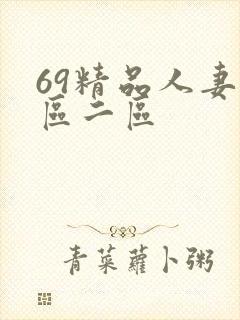 69精品人妻
區二區
青菜蘿卜粥